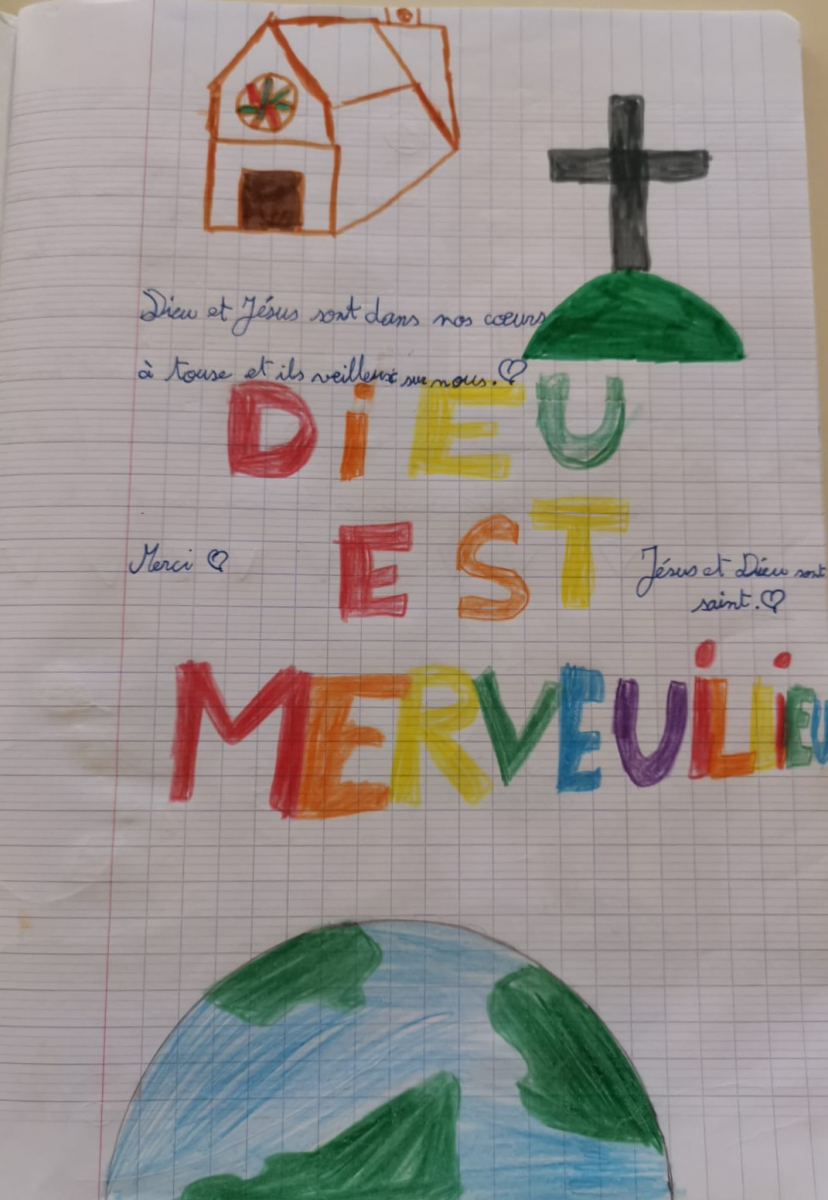 Dieu et Jésus sont dans nos cœurs
à touse et ils veilleux sur nous. ♡
DiEU
EST
Merci ♡
Jésus et Dieu sont
saint. ♡
MERVEUiLiEU